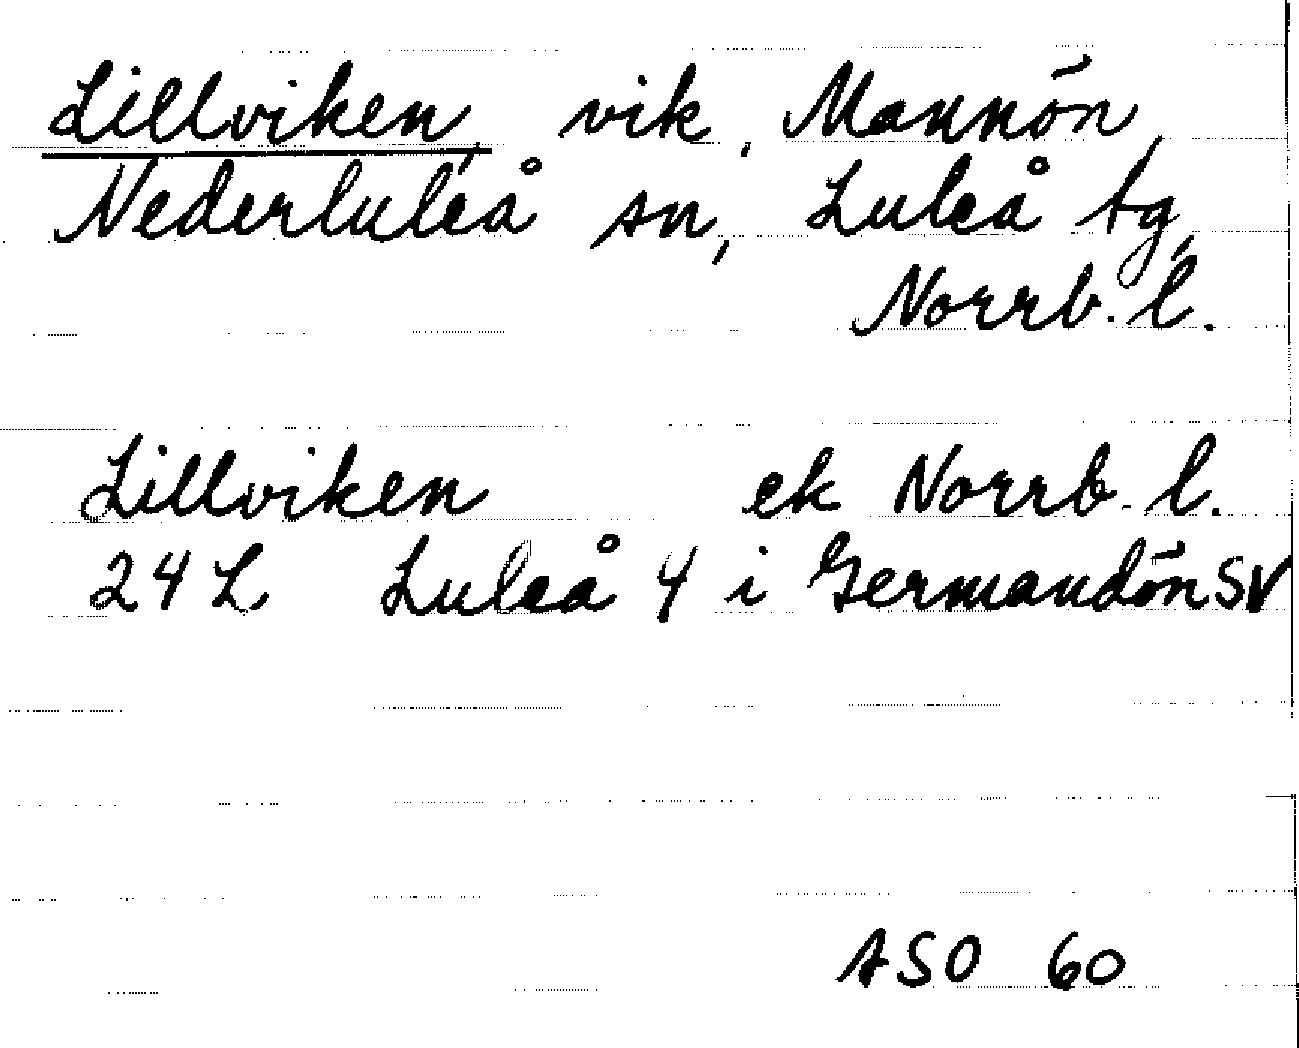 Lillviken, vik, Mannön,
Nederluleå sn, Luleå tg,
Norrb. l.
Lillviken ek Norrb. l.
24 L Luleå 4 i Germandön SV
ASO 60